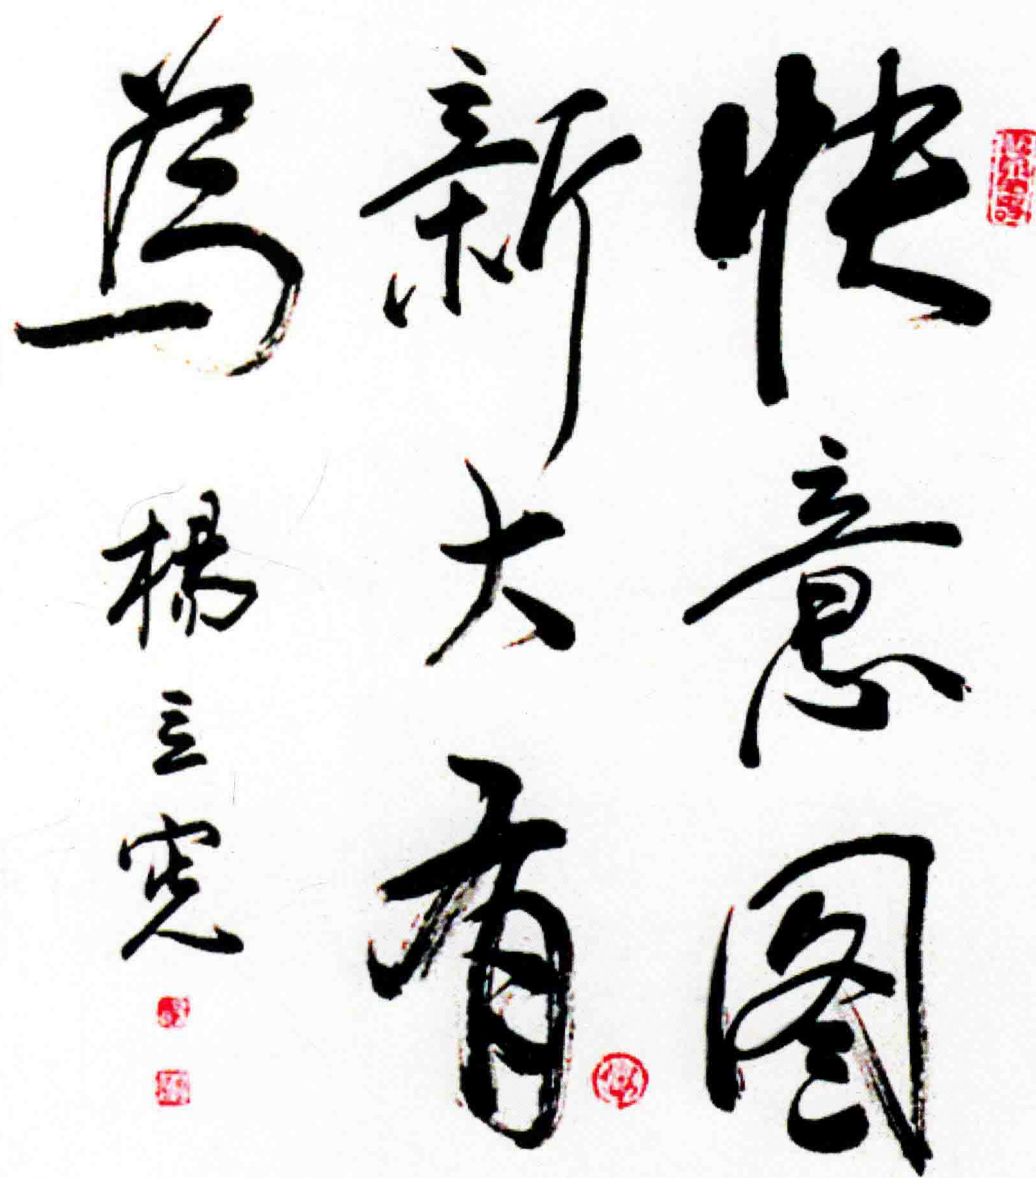 快意图
新大有
為
楊立宪